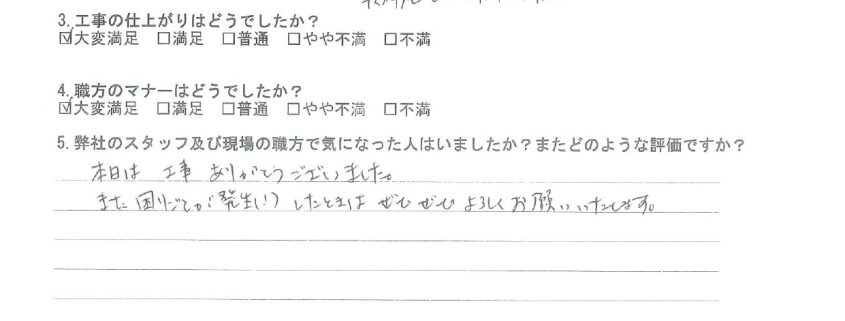 3.工事の仕上がりはどうでしたか？
☑大変満足 □満足 □普通 □やや不満 □不満
4.職方のマナーはどうでしたか？
☑大変満足 □満足 □普通 □やや不満 □不満
5.弊社のスタッフ及び現場の職方で気になった人はいましたか？またどのような評価ですか？
本日は 工事 ありがとうございました。
また 困りごとが 発生 したときは ぜひ ぜひ よろしく お願いいたします。